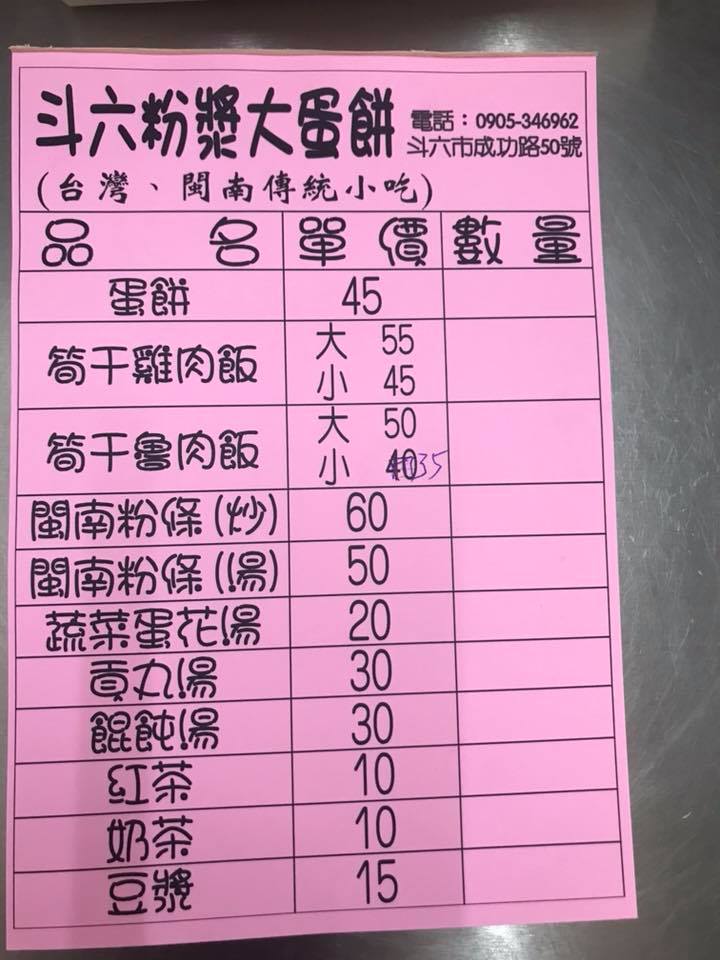 斗六粉漿大蛋餅 電話：0905-346962
斗六市成功路50號
(台灣、閩南傳統小吃)
品名 單價 數量
蛋餅 45
筍干雞肉飯 大 55
小 45
筍干魯肉飯 大 50
小 40 35
閩南粉條(炒) 60
閩南粉條(湯) 50
蔬菜蛋花湯 20
貢丸湯 30
餛飩湯 30
紅茶 10
奶茶 10
豆漿 15